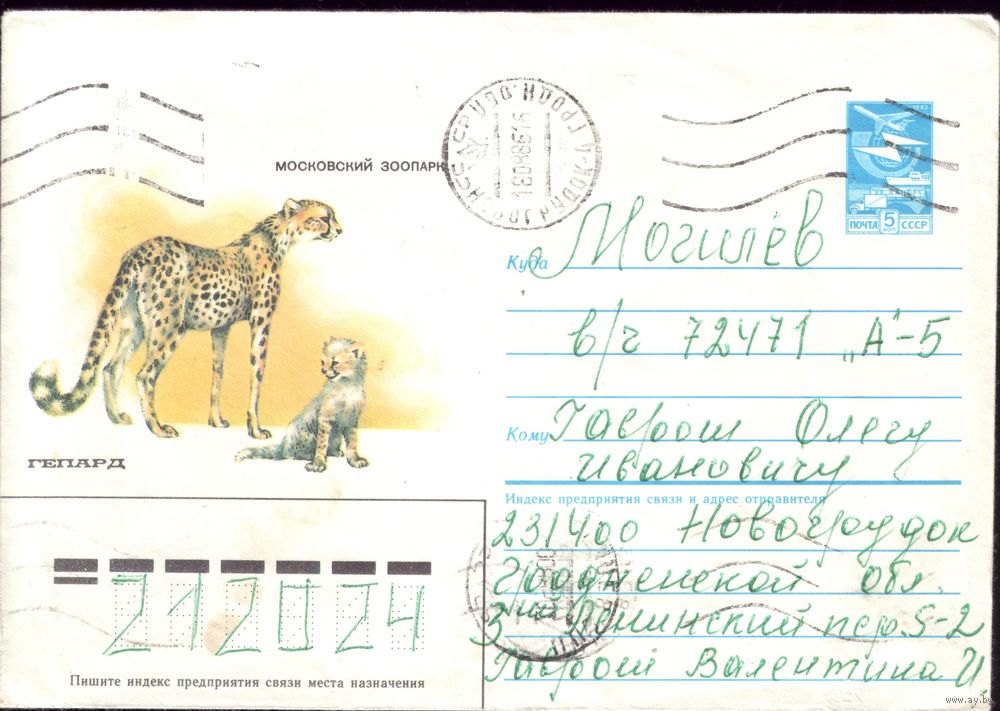 МОСКОВСКИЙ ЗООПАРК
ГЕПАРД
ПОЧТА 5 КОП СССР
Куда Могилёв
в/ч 72471 „А"-5
Кому Гаврош Олегу
Ивановичу
Индекс предприятия связи и адрес отправителя
231400 Новогрудок
Гродненской обл.
3-ий Ленинский пер. 5-2
Гаврош Валентина И.
212024
Пишите индекс предприятия связи места назначения
www.ay.by